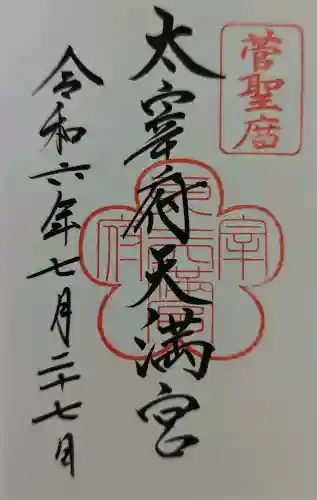 菅聖廟
太宰府天満宮
令和六年七月二十七日